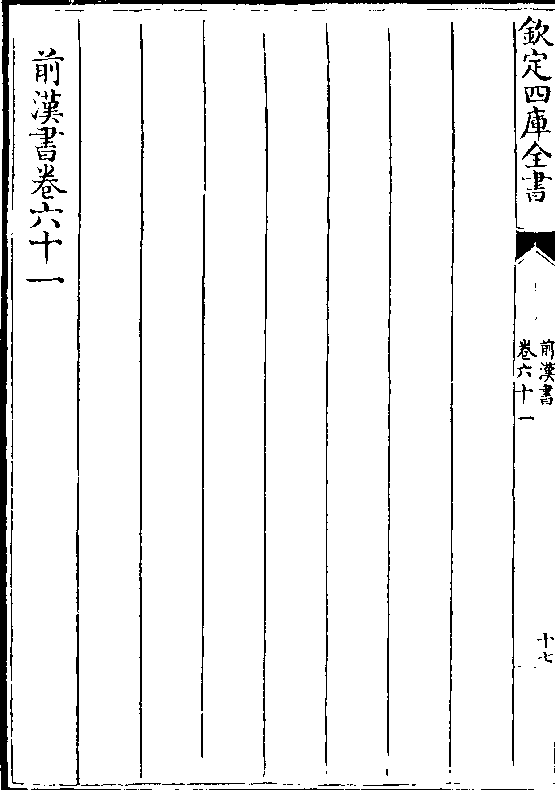 欽定四庫全書
前漢書
卷六十一
十七
前漢書卷六十一